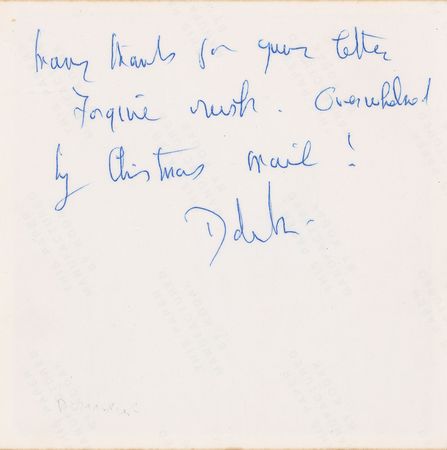 Many thanks for your letter
Forgive rush. Overwhelmed
by Christmas mail!